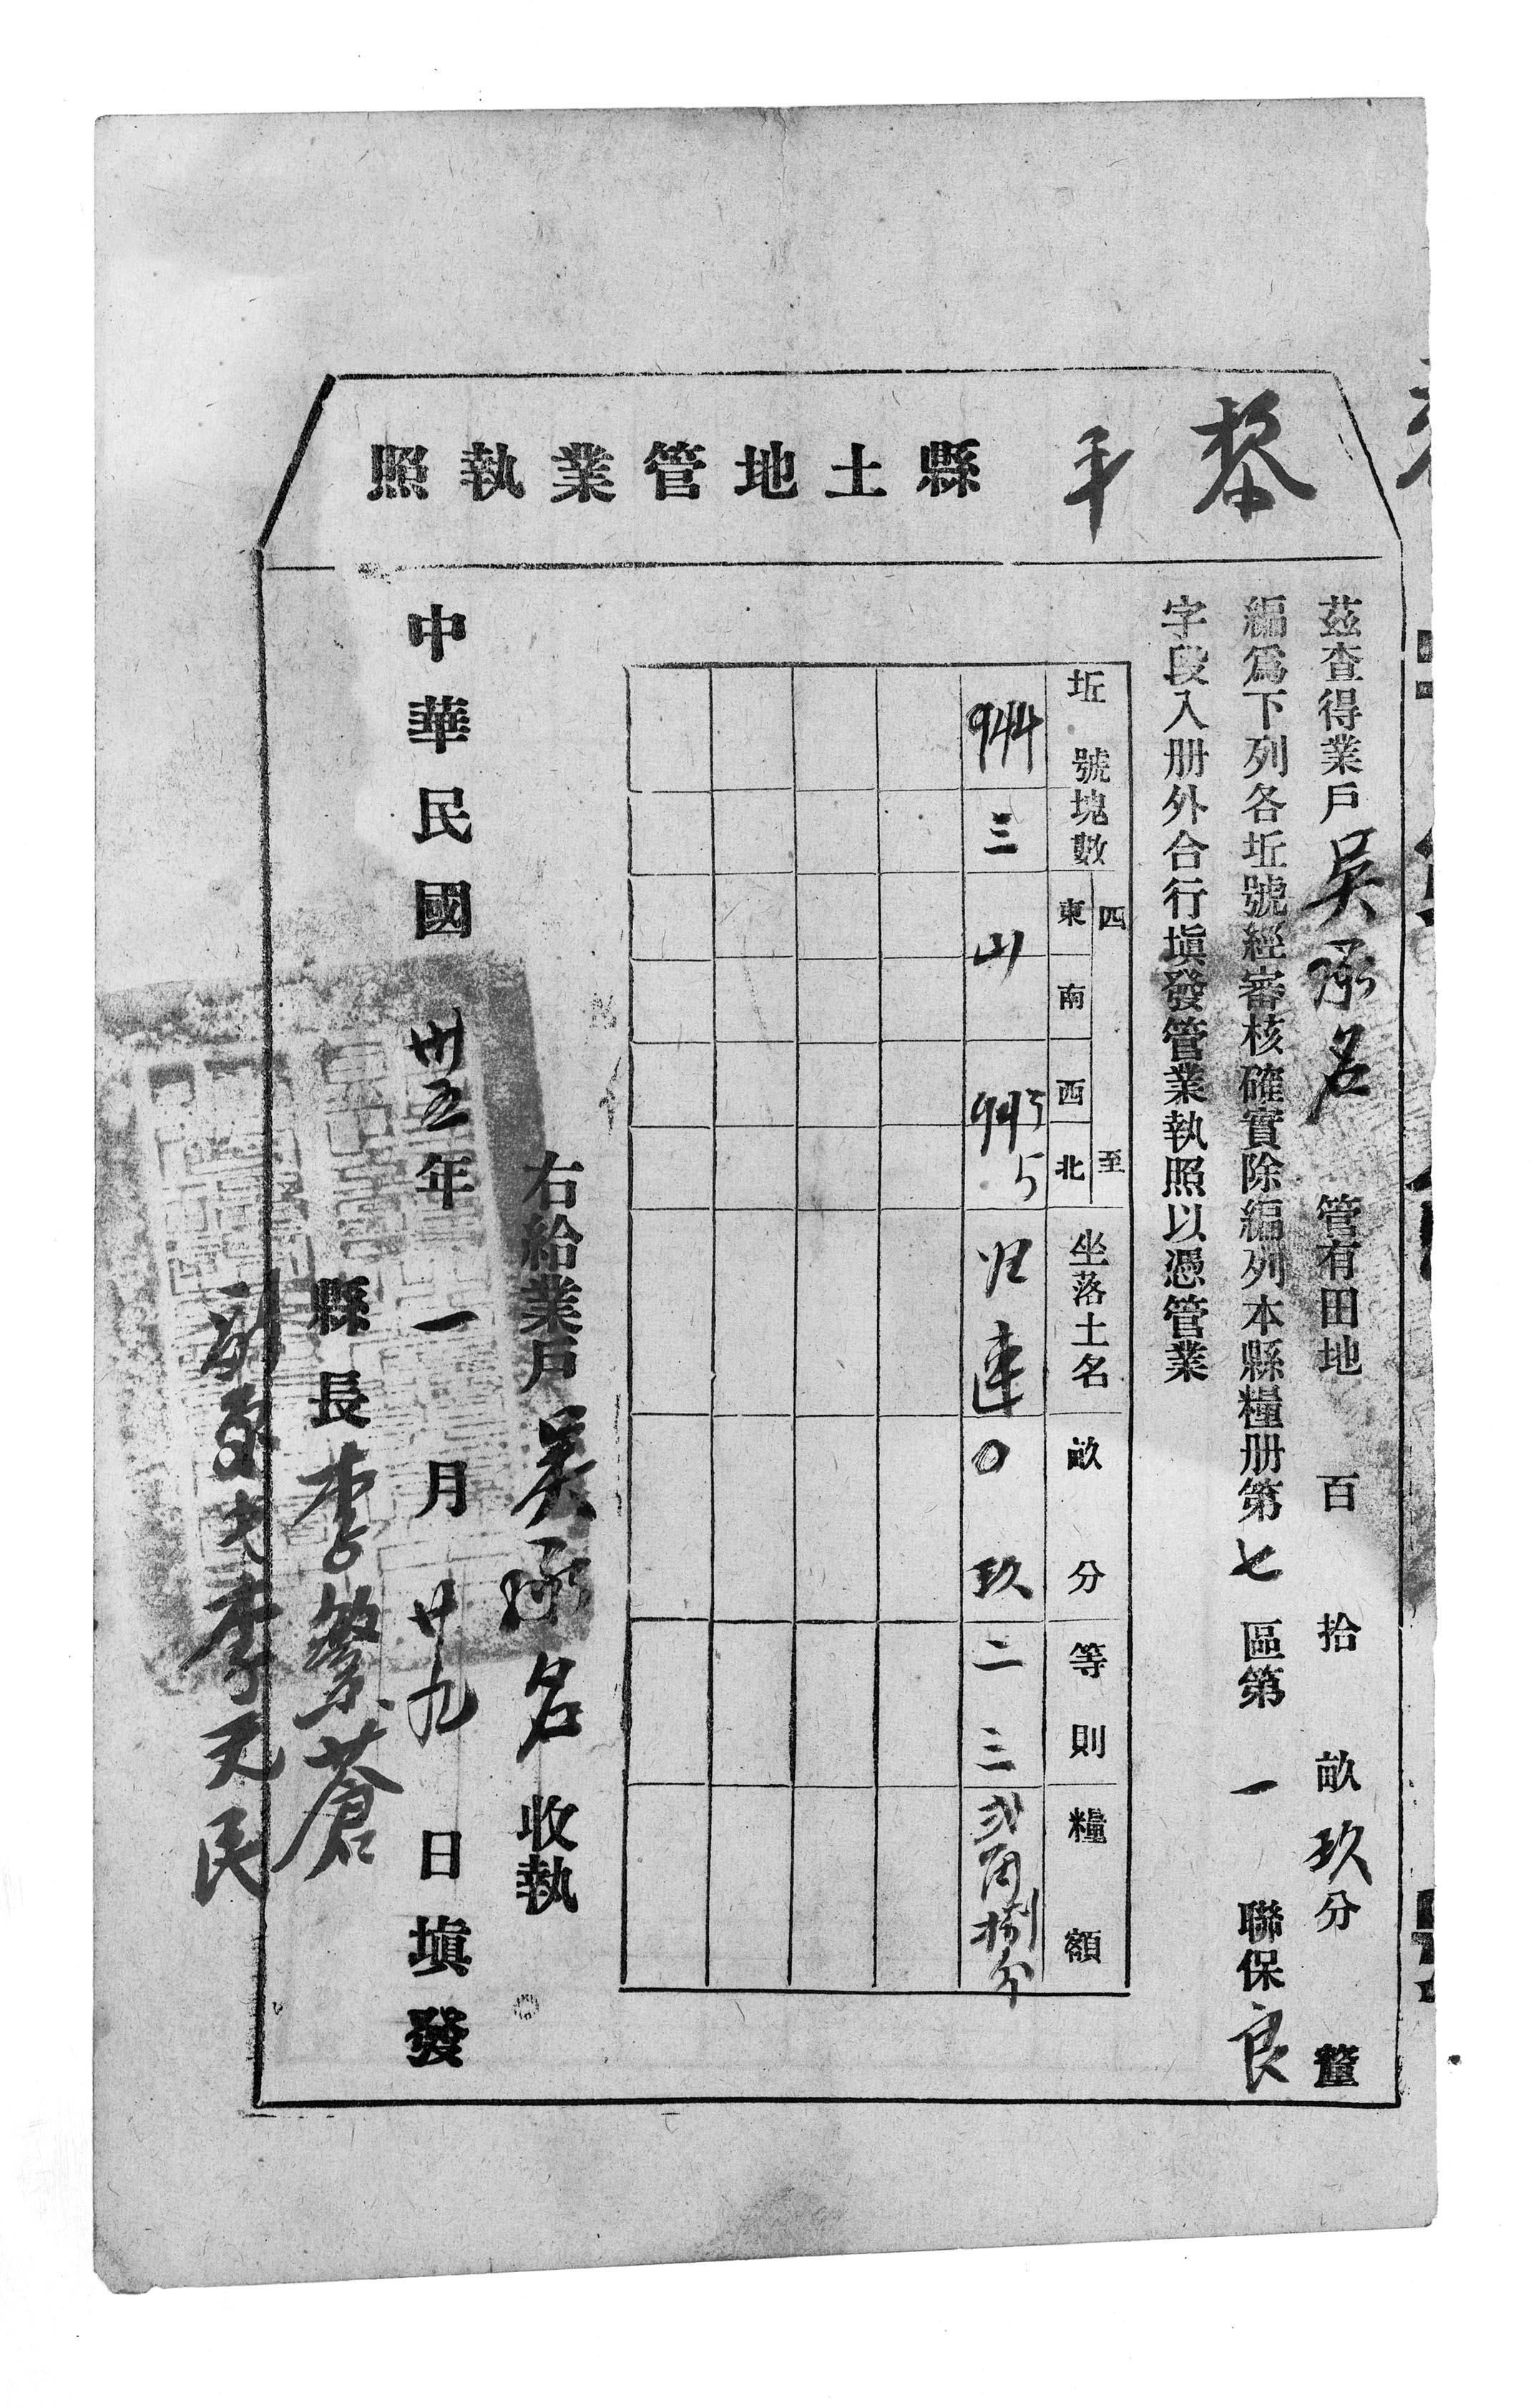 黎平縣土地管業執照
茲查得業戶吳承名管有田地 百 拾 畝玖分 釐
編爲下列各坵號經審核確實除編列本縣糧册第七區第一聯保良
字段入册外合行塡發管業執照以憑管業
坵號 塊數 四至 東 南 西 北 坐落土名 畝 分 等則 糧額
944 三 山 945 归連 0 玖 二 三 貳角捌分
右給業戶吳承名收執
中華民國卅五年一月廿九日塡發
縣長李繁蒼
李元民